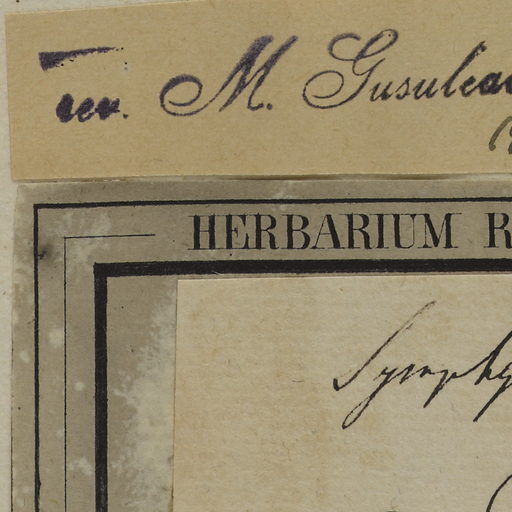 rev. M. Gusuleac
HERBARIUM R
Symphy